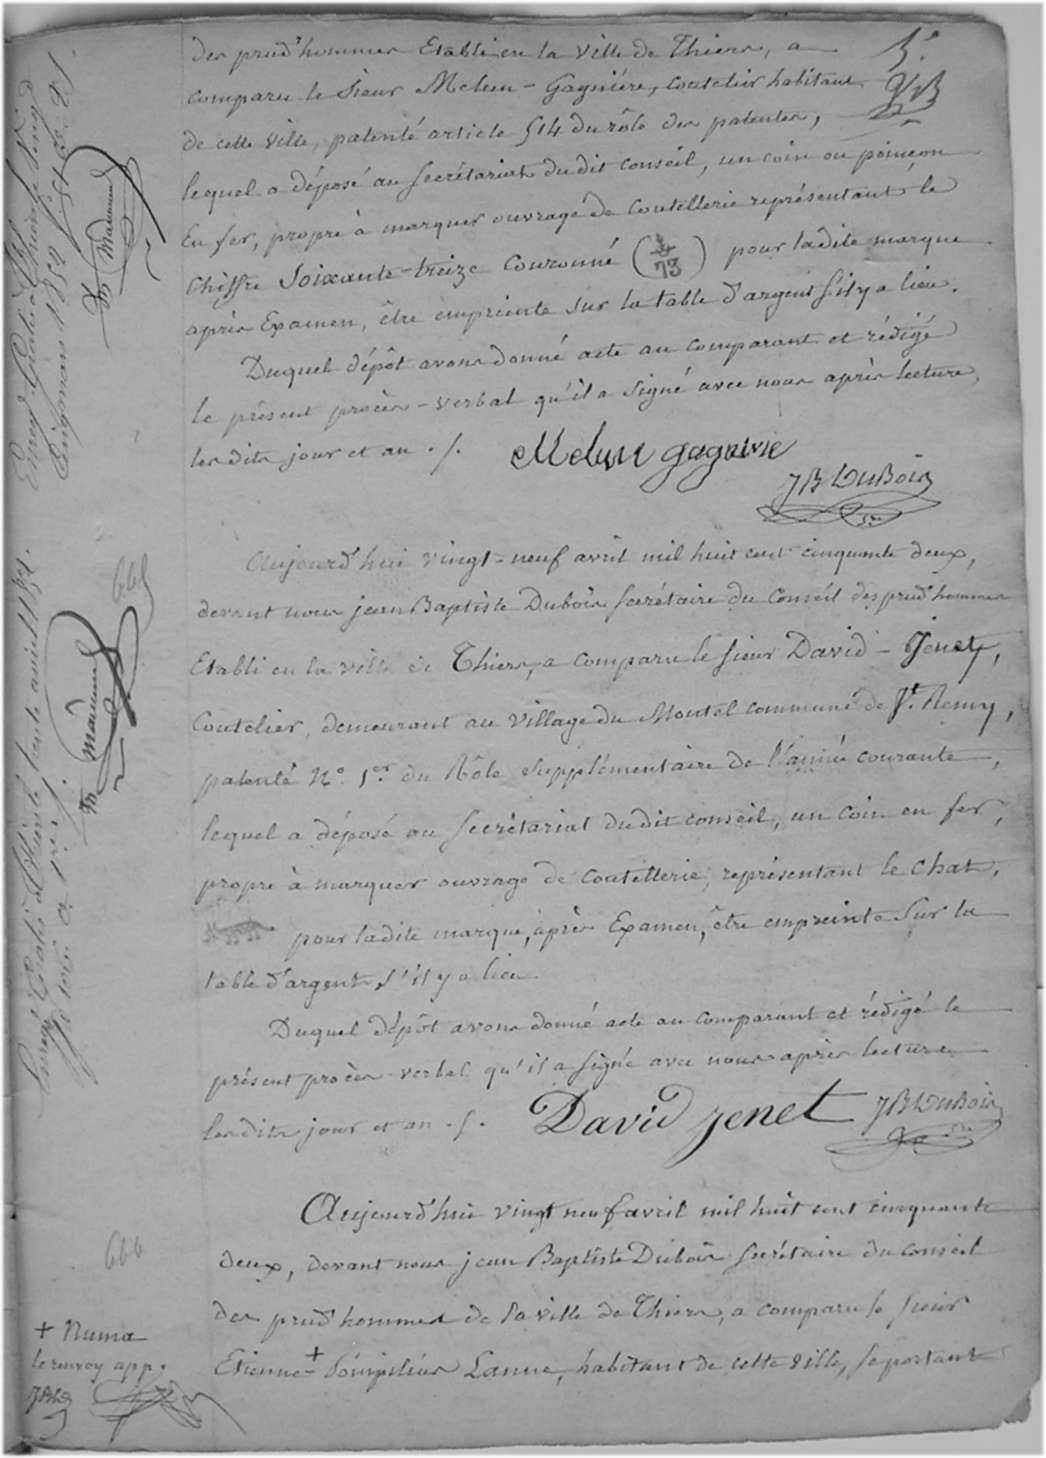 des prud'hommes Etabli en la ville de Thiers, a
comparu le Sieur Melun - Gagnière, coutelier habitant
de cette ville, patenté article 514 du rôle des patentes,
lequel a déposé au secrétariat du dit conseil, un coin ou poinçon
En fer, propre à marquer ouvrage de coutellerie représentant le
Chiffre Soixante-treize Couronné (73) pour ladite marque
après Examen, être empreinte sur la table d'argent s'il y a lieu.
Duquel dépôt avons donné acte au comparant et rédigé
le présent procès-verbal qu'il a signé avec nous après lecture
les dits jour et an ./.
Melun gagniere
JB DuBois
5e
JB
Thiers
665
Aujourd'hui vingt-neuf avril mil huit cent cinquante deux,
devant nous jean Baptiste Dubois secrétaire du Conseil des prud'hommes
Etabli en la ville de Thiers, a comparu le sieur David - Jenet,
Coutelier, demeurant au village du Montel commune de St. Remy,
patenté No. 1er du Rôle supplémentaire de l'année courante,
lequel a déposé au secrétariat du dit conseil, un coin en fer,
propre à marquer ouvrage de coutellerie, représentant le Chat,
pour ladite marque, après Examen, être empreinte sur la
table d'argent, s'il y a lieu
Duquel dépôt avons donné acte au comparant et rédigé le
présent procès-verbal qu'il a signé avec nous après lecture
les dits jour et an ./.
David jenet
JB DuBois
trente avril 1852.
666
Aujourd'hui vingt neuf avril mil huit cent cinquante
deux, devant nous jean Baptiste Dubois secrétaire du conseil
des prud'hommes de la ville de Thiers, a comparu le sieur
Etienne + Pompilius Lanne, habitant de cette ville, se portant
+ Numa
le renvoy app.